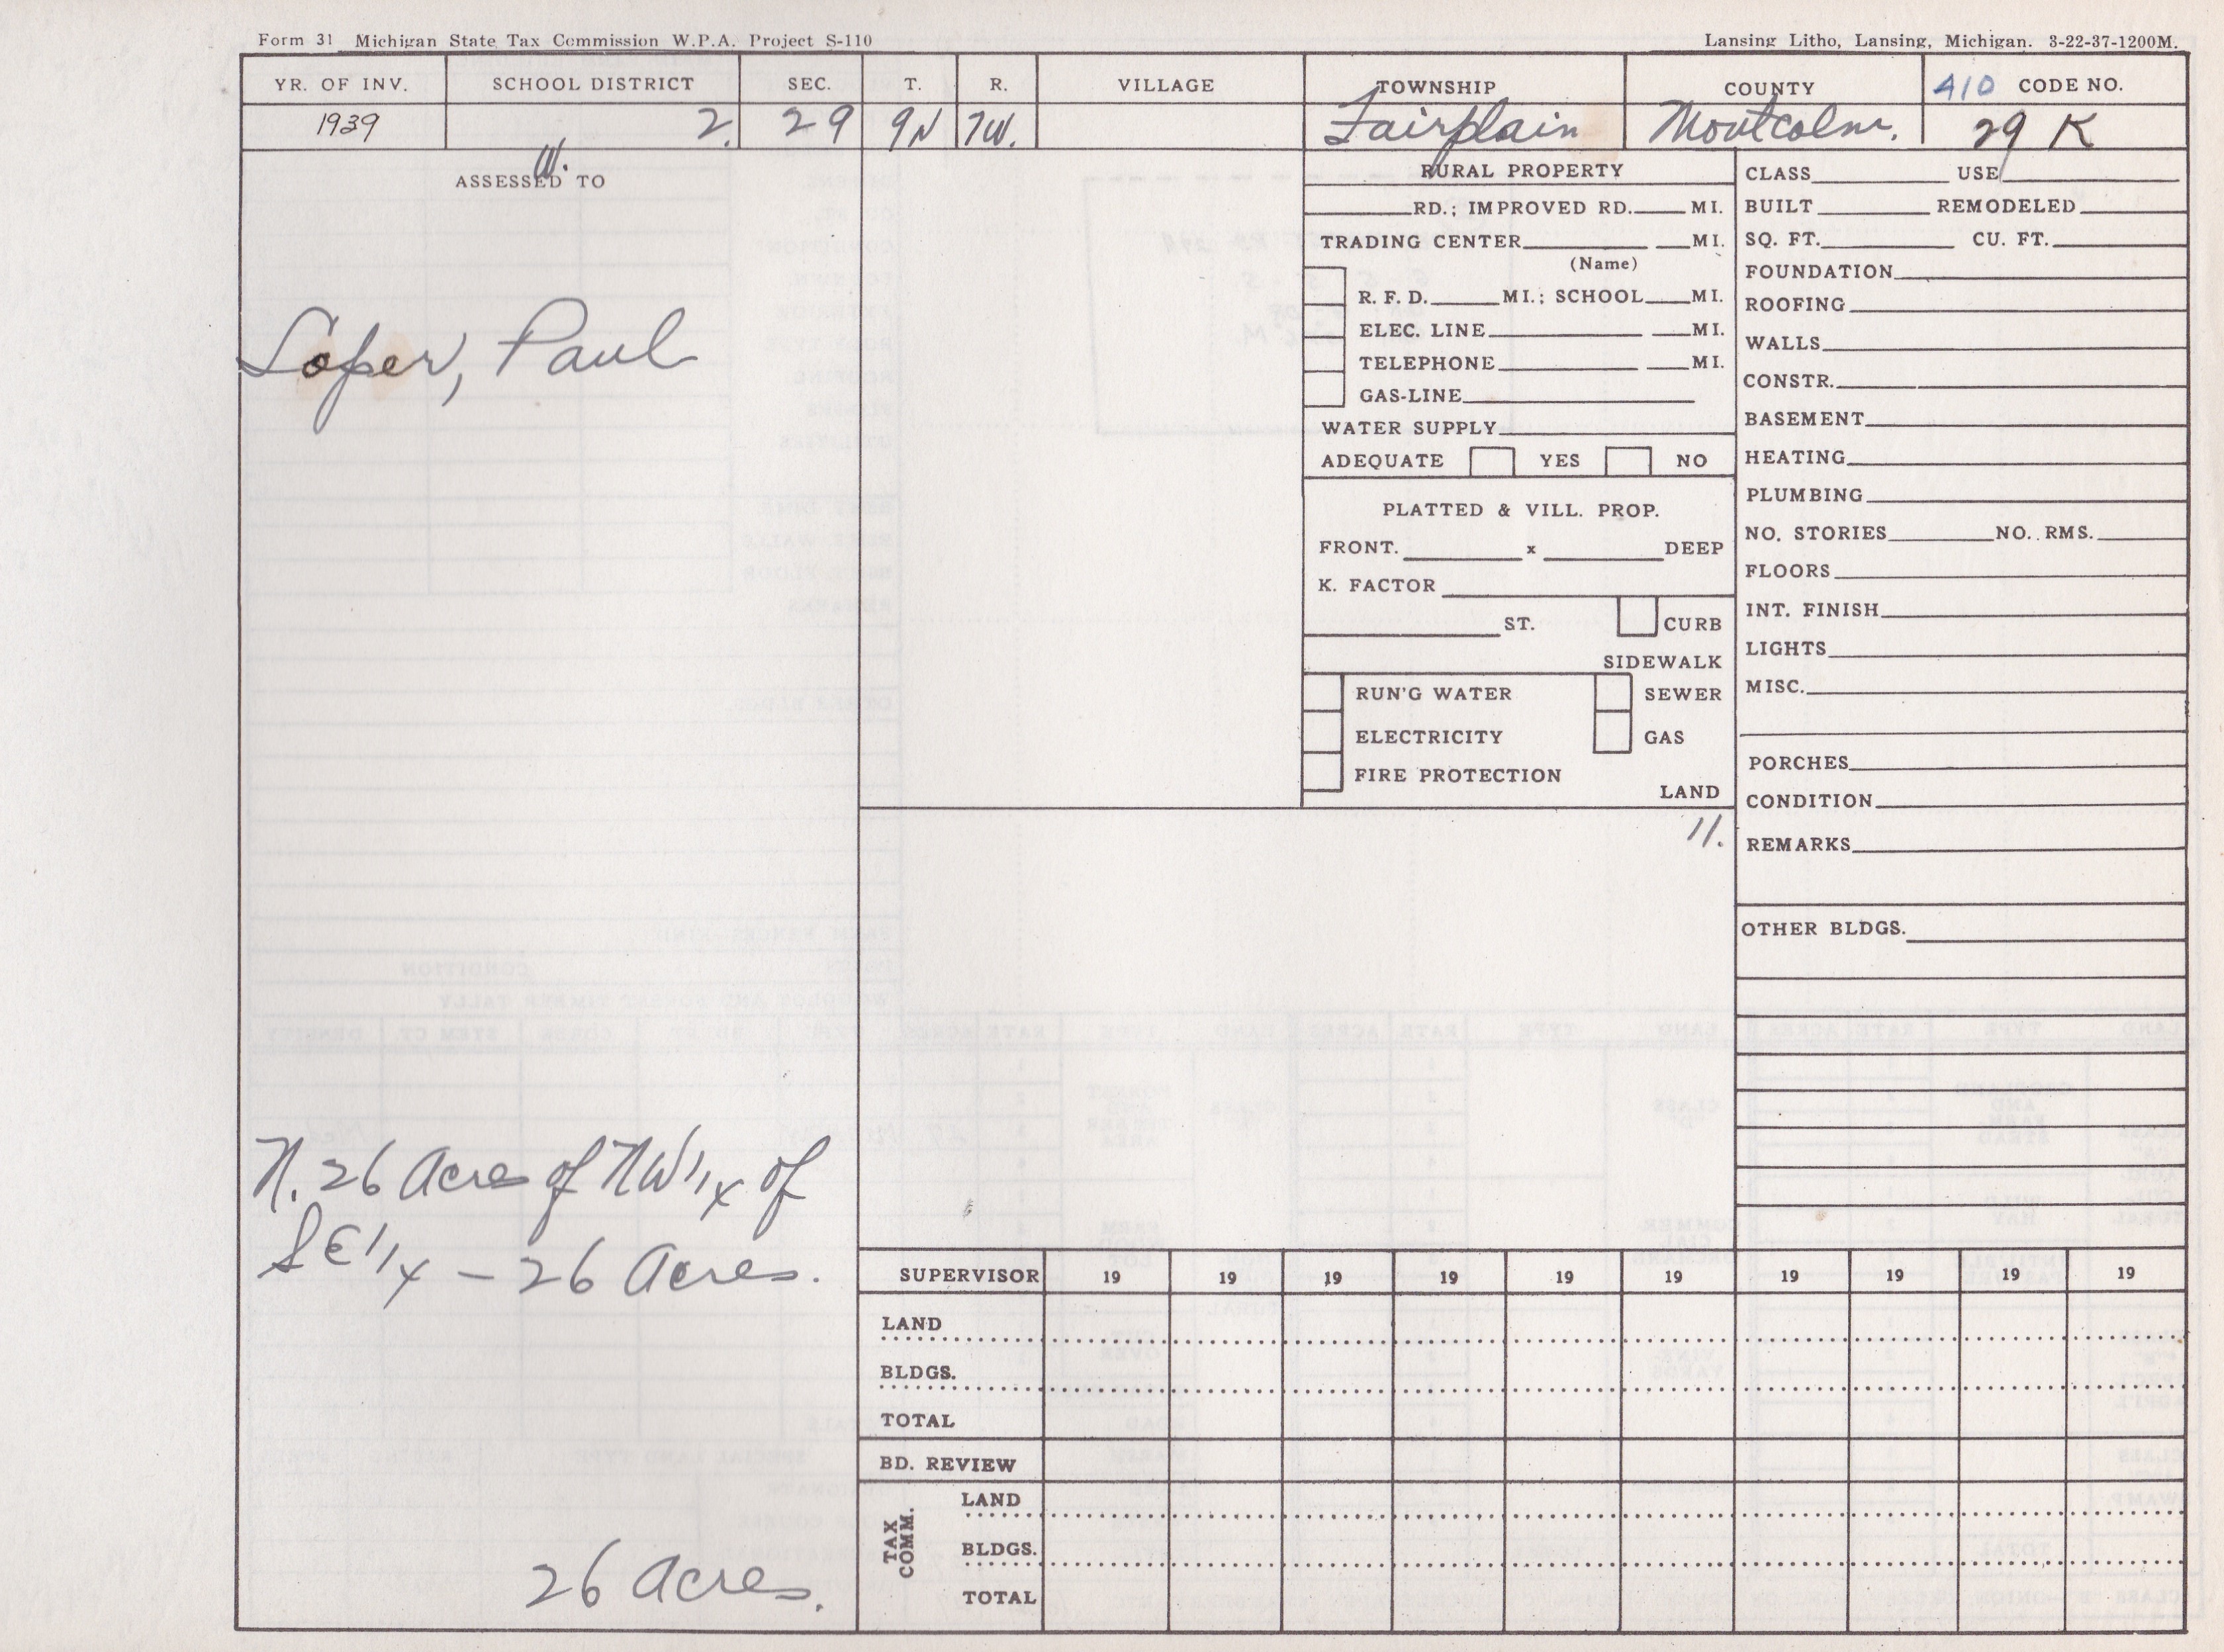 Form 31 Michigan State Tax Commission W.P.A. Project S-110
Lansing Litho, Lansing, Michigan. 3-22-37-1200M.
YR. OF INV. SCHOOL DISTRICT SEC. T. R. VILLAGE TOWNSHIP COUNTY 410 CODE NO.
1939 2. 29 9N 7W. Fairplain Montcalm. 29 K
W.
ASSESSED TO
Loper, Paul
N. 26 Acres of NW 1/4 of
SE 1/4 - 26 Acres.
26 Acres.
RURAL PROPERTY
RD.; IMPROVED RD. MI.
TRADING CENTER MI.
(Name)
R. F. D. MI.; SCHOOL MI.
ELEC. LINE MI.
TELEPHONE MI.
GAS-LINE
WATER SUPPLY
ADEQUATE YES NO
PLATTED & VILL. PROP.
FRONT. x DEEP
K. FACTOR
ST. CURB
SIDEWALK
RUN'G WATER SEWER
ELECTRICITY GAS
FIRE PROTECTION
LAND
11.
CLASS USE
BUILT REMODELED
SQ. FT. CU. FT.
FOUNDATION
ROOFING
WALLS
CONSTR.
BASEMENT
HEATING
PLUMBING
NO. STORIES NO. RMS.
FLOORS
INT. FINISH
LIGHTS
MISC.
PORCHES
CONDITION
REMARKS
OTHER BLDGS.
SUPERVISOR 19 19 19 19 19 19 19 19 19 19
LAND
BLDGS.
TOTAL
BD. REVIEW
TAX COMM.
LAND
BLDGS.
TOTAL